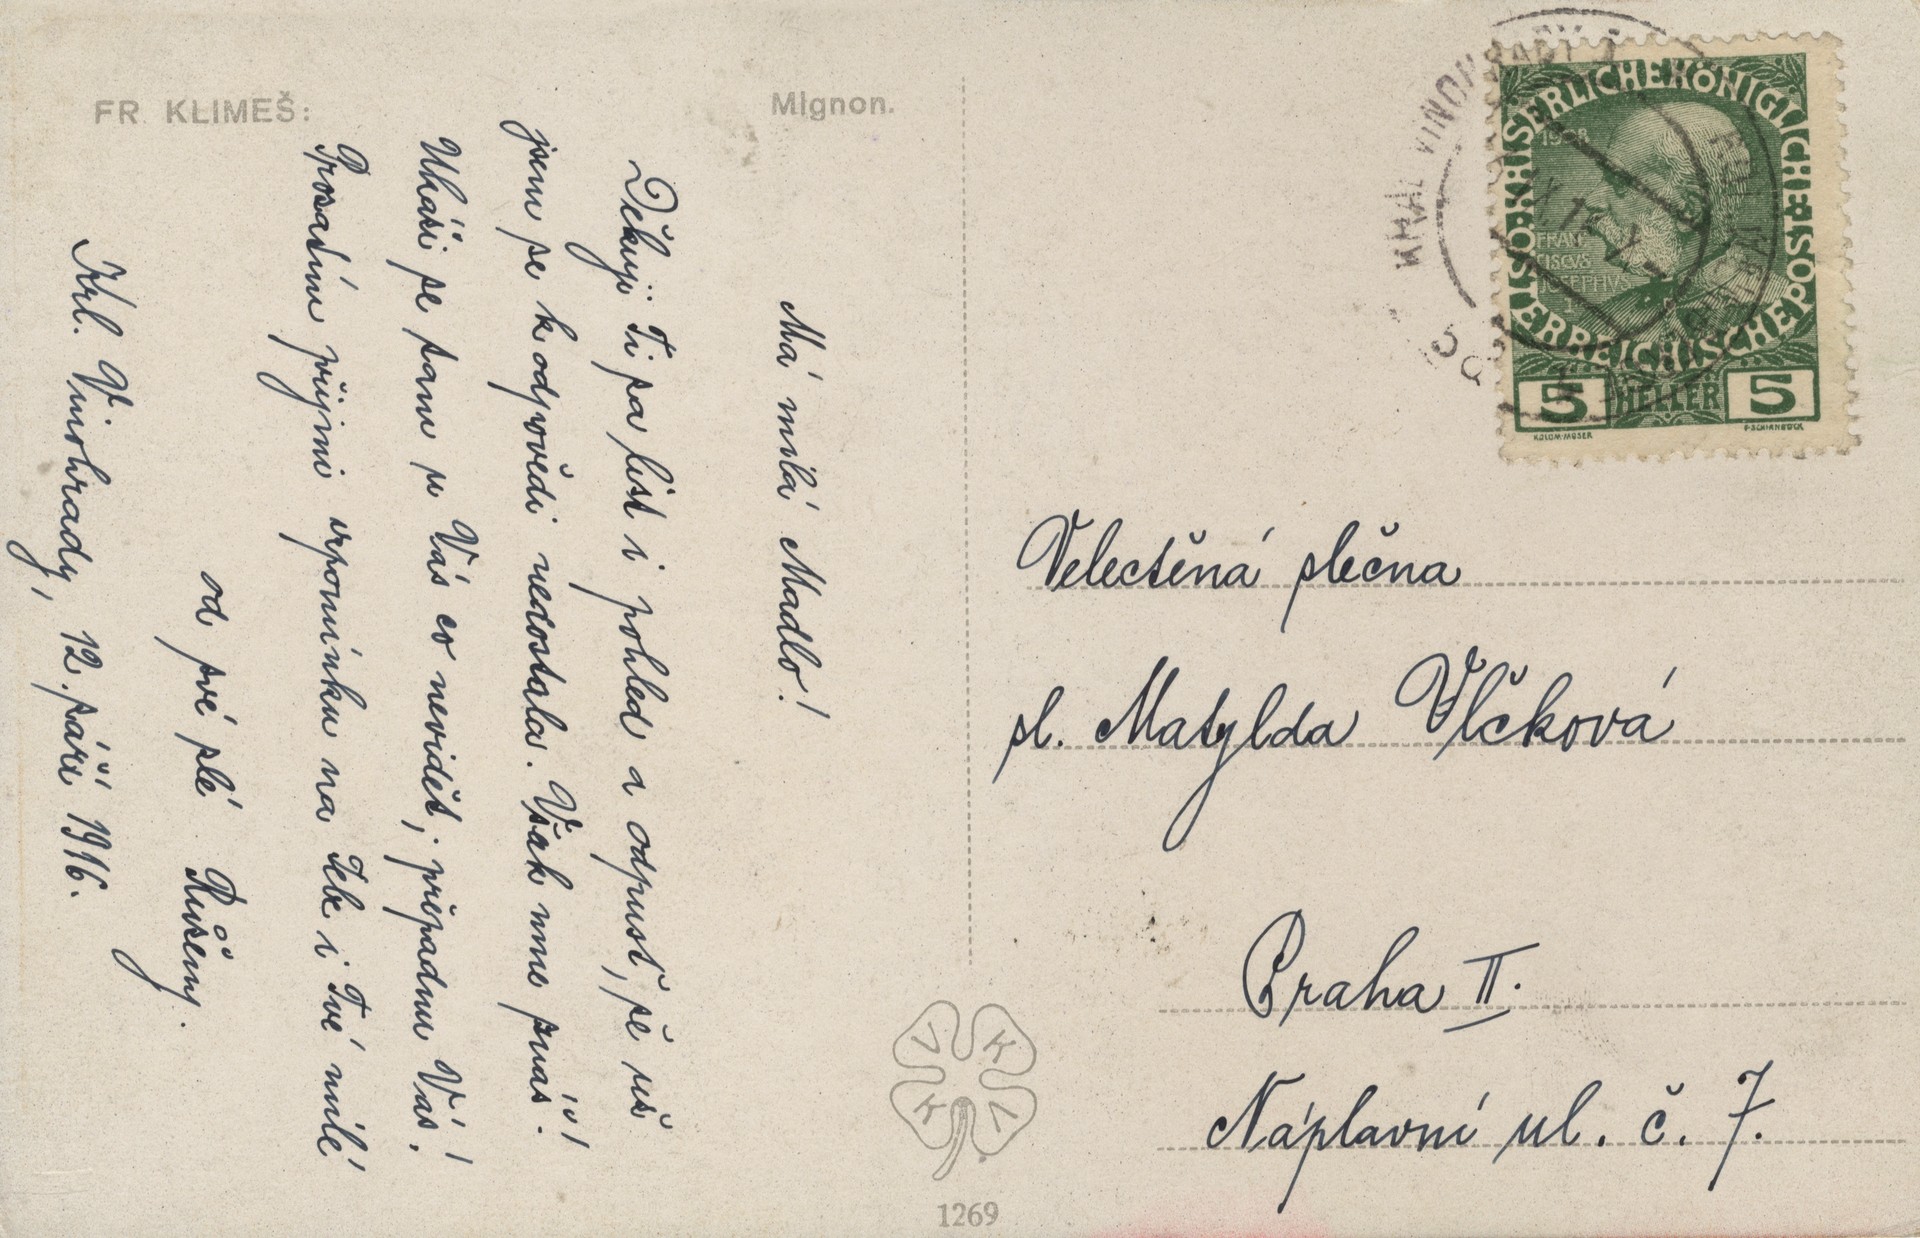 FR. KLIMEŠ:
Mignon.
Má milá Madlo!
Děkuji Ti za list i pohled a odpusť, že už
jsem se k odpovědi nedostala. Však mne znáš!
Ukáži se tam u Vás co nevidět, přepadnu Vás!
Prozatím přijmi vzpomínku na Tebe i Tvé milé
od své zlé Růženy.
Král. Vinohrady, 12. září 1916.
ÖSTERREICHISCHE POST
KAISERLICHE KÖNIGLICHE
1908
FRAN
CISCVS
JOSEPHVS
I
5 HELLER 5
KOLOM. MOSER
F. SCHIRNBÖCK
Velectěná slečna
sl. Matylda Vlčková
Praha II.
Náplavní ul. č. 7.
V K K V
1269